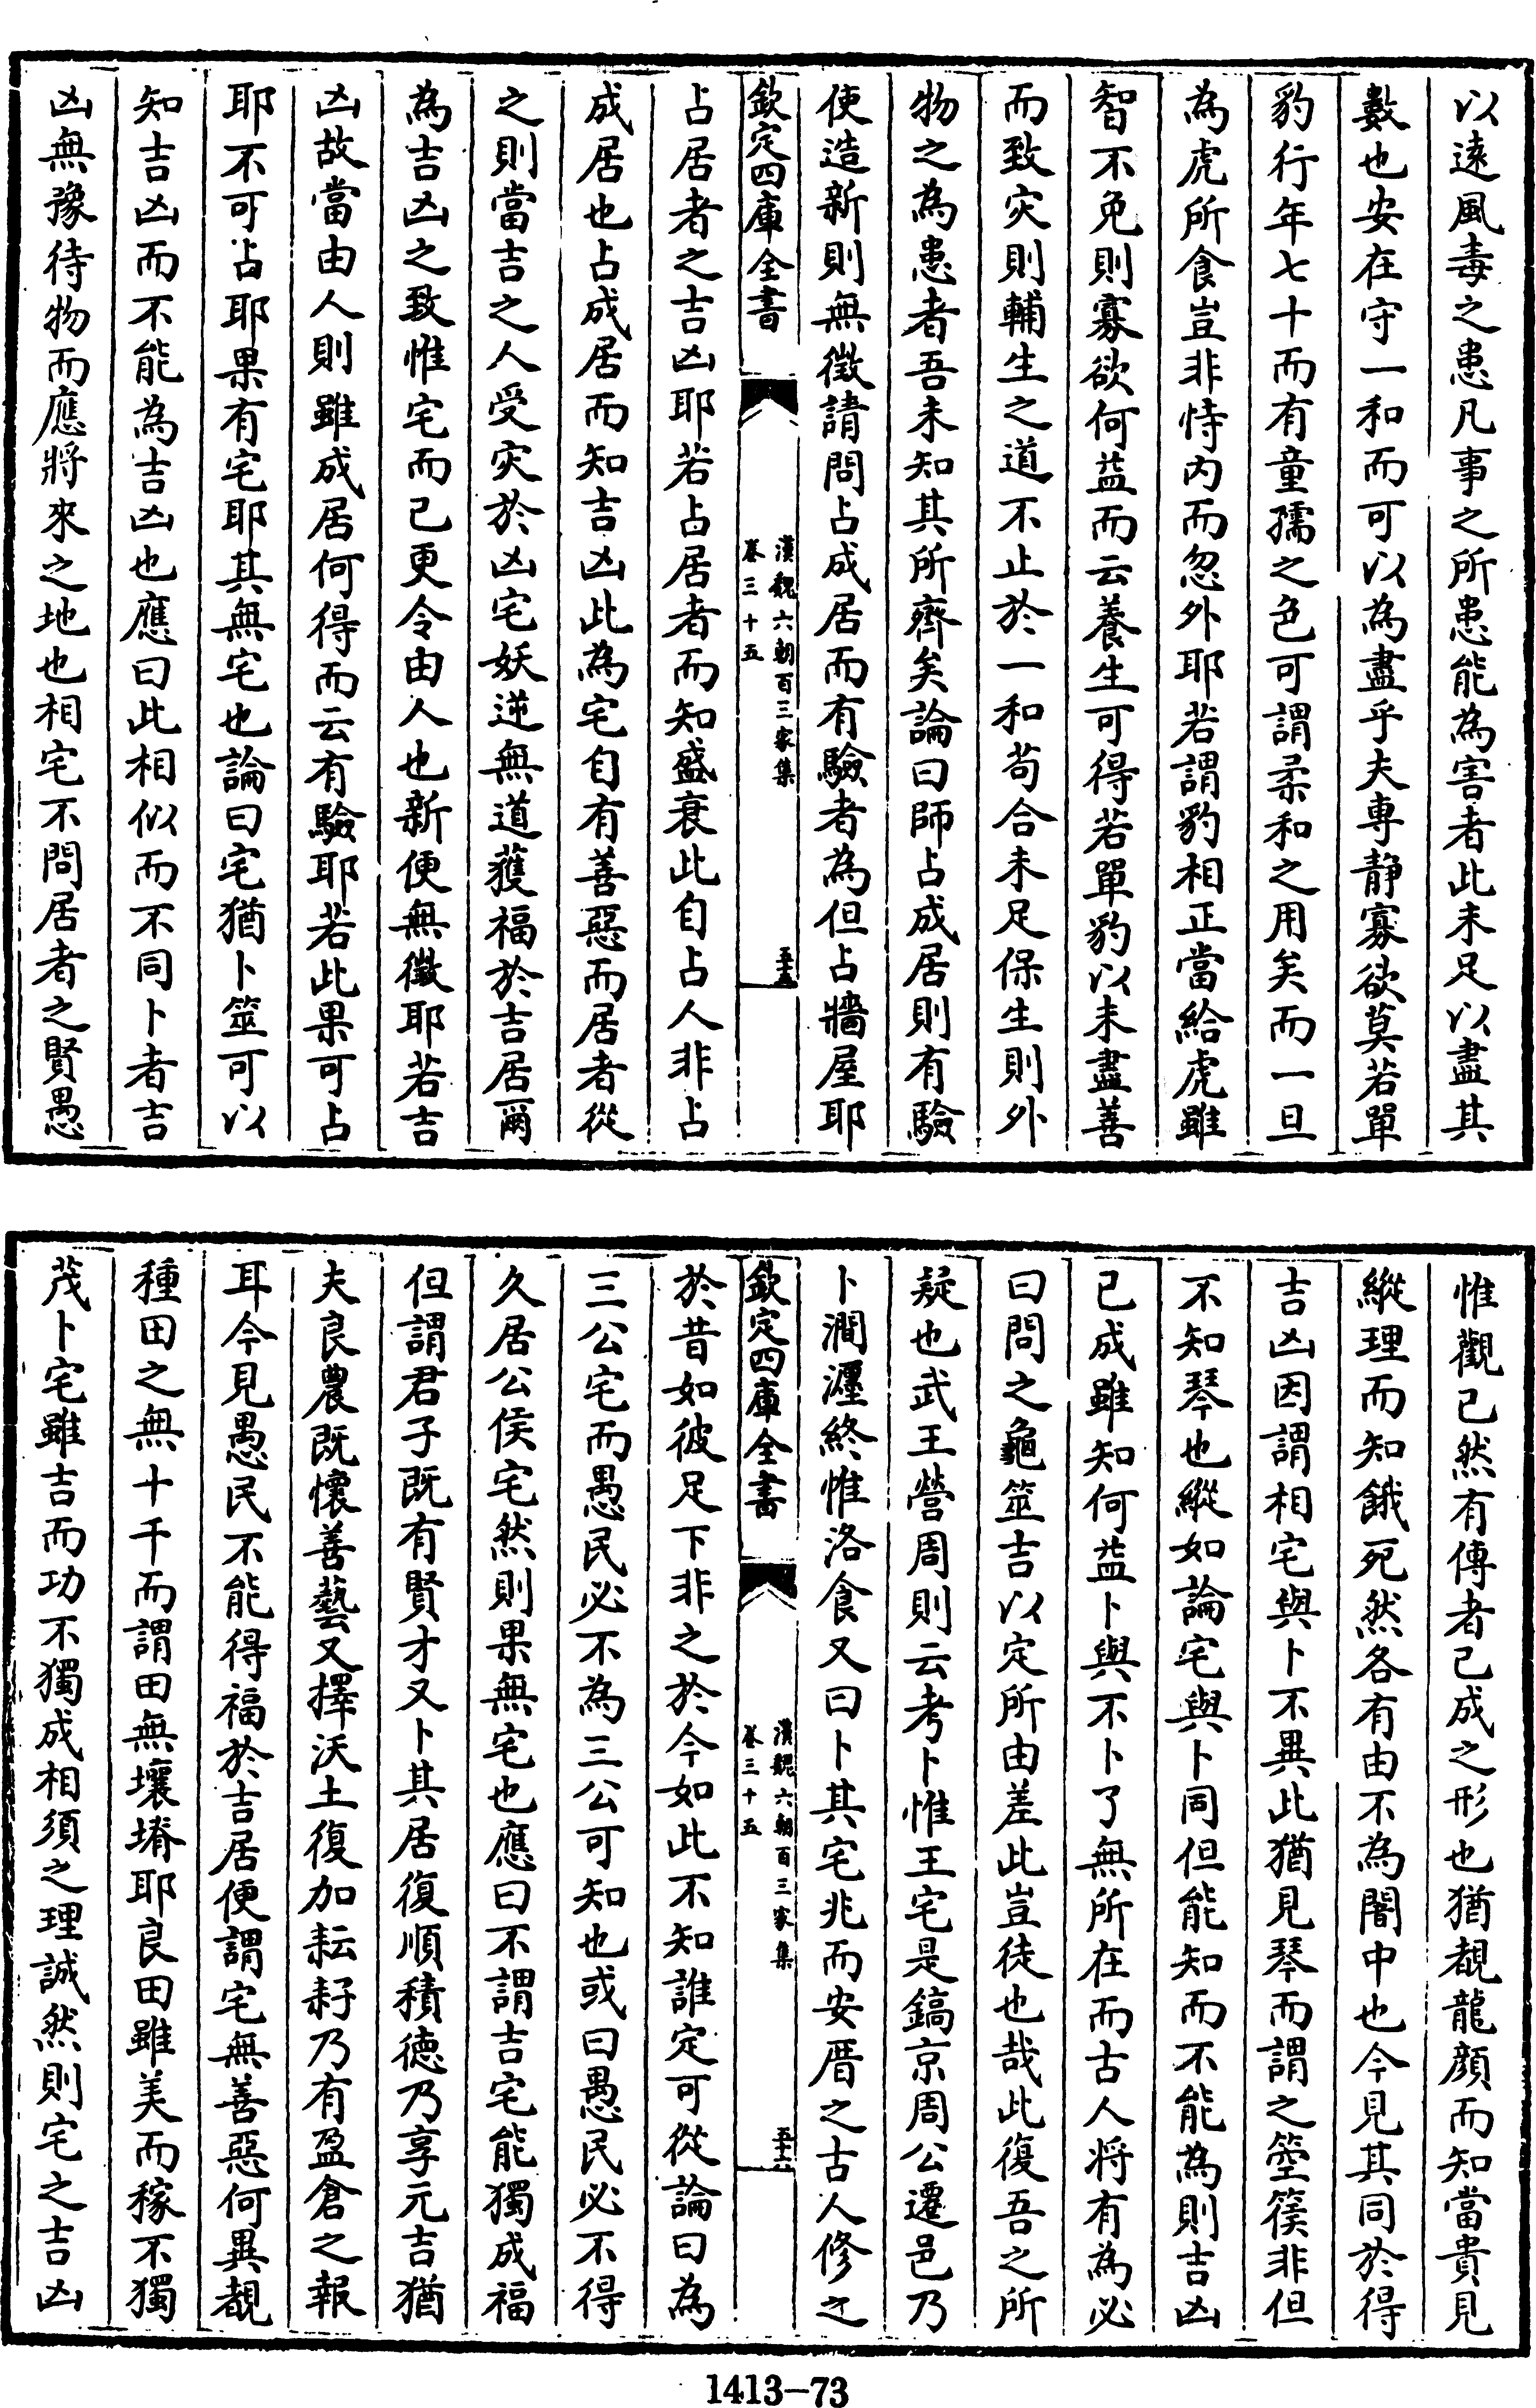 以遠風毒之患凡事之所患能為害者此未足以盡其
數也安在守一和而可以為盡乎夫專靜寡欲莫若單
豹行年七十而有童孺之色可謂柔和之用矣而一旦
為虎所食豈非恃内而忽外耶若謂豹相正當給虎雖
智不免則寡欲何益而云養生可得若單豹以未盡善
而致灾則輔生之道不止於一和苟合未足保生則外
物之為患者吾未知其所齊矣論曰師占成居則有驗
使造新則無徵請問占成居而有驗者為但占牆屋耶
欽定四庫全書
漢魏六朝百三家集
卷三十五
五十五
占居者之吉凶耶若占居者而知盛衰此自占人非占
成居也占成居而知吉凶此為宅自有善惡而居者從
之則當吉之人受灾於凶宅妖逆無道獲福於吉居爾
為吉凶之致惟宅而已更令由人也新便無徵耶若吉
凶故當由人則雖成居何得而云有驗耶若此果可占
耶不可占耶果有宅耶其無宅也論曰宅猶卜筮可以
知吉凶而不能為吉凶也應曰此相似而不同卜者吉
凶無豫待物而應將來之地也相宅不問居者之賢愚
惟觀已然有傳者已成之形也猶覩龍顔而知當貴見
縱理而知餓死然各有由不為闇中也今見其同於得
吉凶因謂相宅與卜不異此猶見琴而謂之箜篌非但
不知琴也縱如論宅與卜同但能知而不能為則吉凶
已成雖知何益卜與不卜了無所在而古人將有為必
曰問之龜筮吉以定所由差此豈徒也哉此復吾之所
疑也武王營周則云考卜惟王宅是鎬京周公遷邑乃
卜澗瀍終惟洛食又曰卜其宅兆而安厝之古人修之
欽定四庫全書
漢魏六朝百三家集
卷三十五
五十六
於昔如彼足下非之於今如此不知誰定可從論曰為
三公宅而愚民必不為三公可知也或曰愚民必不得
久居公侯宅然則果無宅也應曰不謂吉宅能獨成福
但謂君子既有賢才又卜其居復順積德乃享元吉猶
夫良農既懷善藝又擇沃土復加耘耔乃有盈倉之報
耳今見愚民不能得福於吉居便謂宅無善惡何異覩
種田之無十千而謂田無壤塉耶良田雖美而稼不獨
茂卜宅雖吉而功不獨成相須之理誠然則宅之吉凶
1413-73